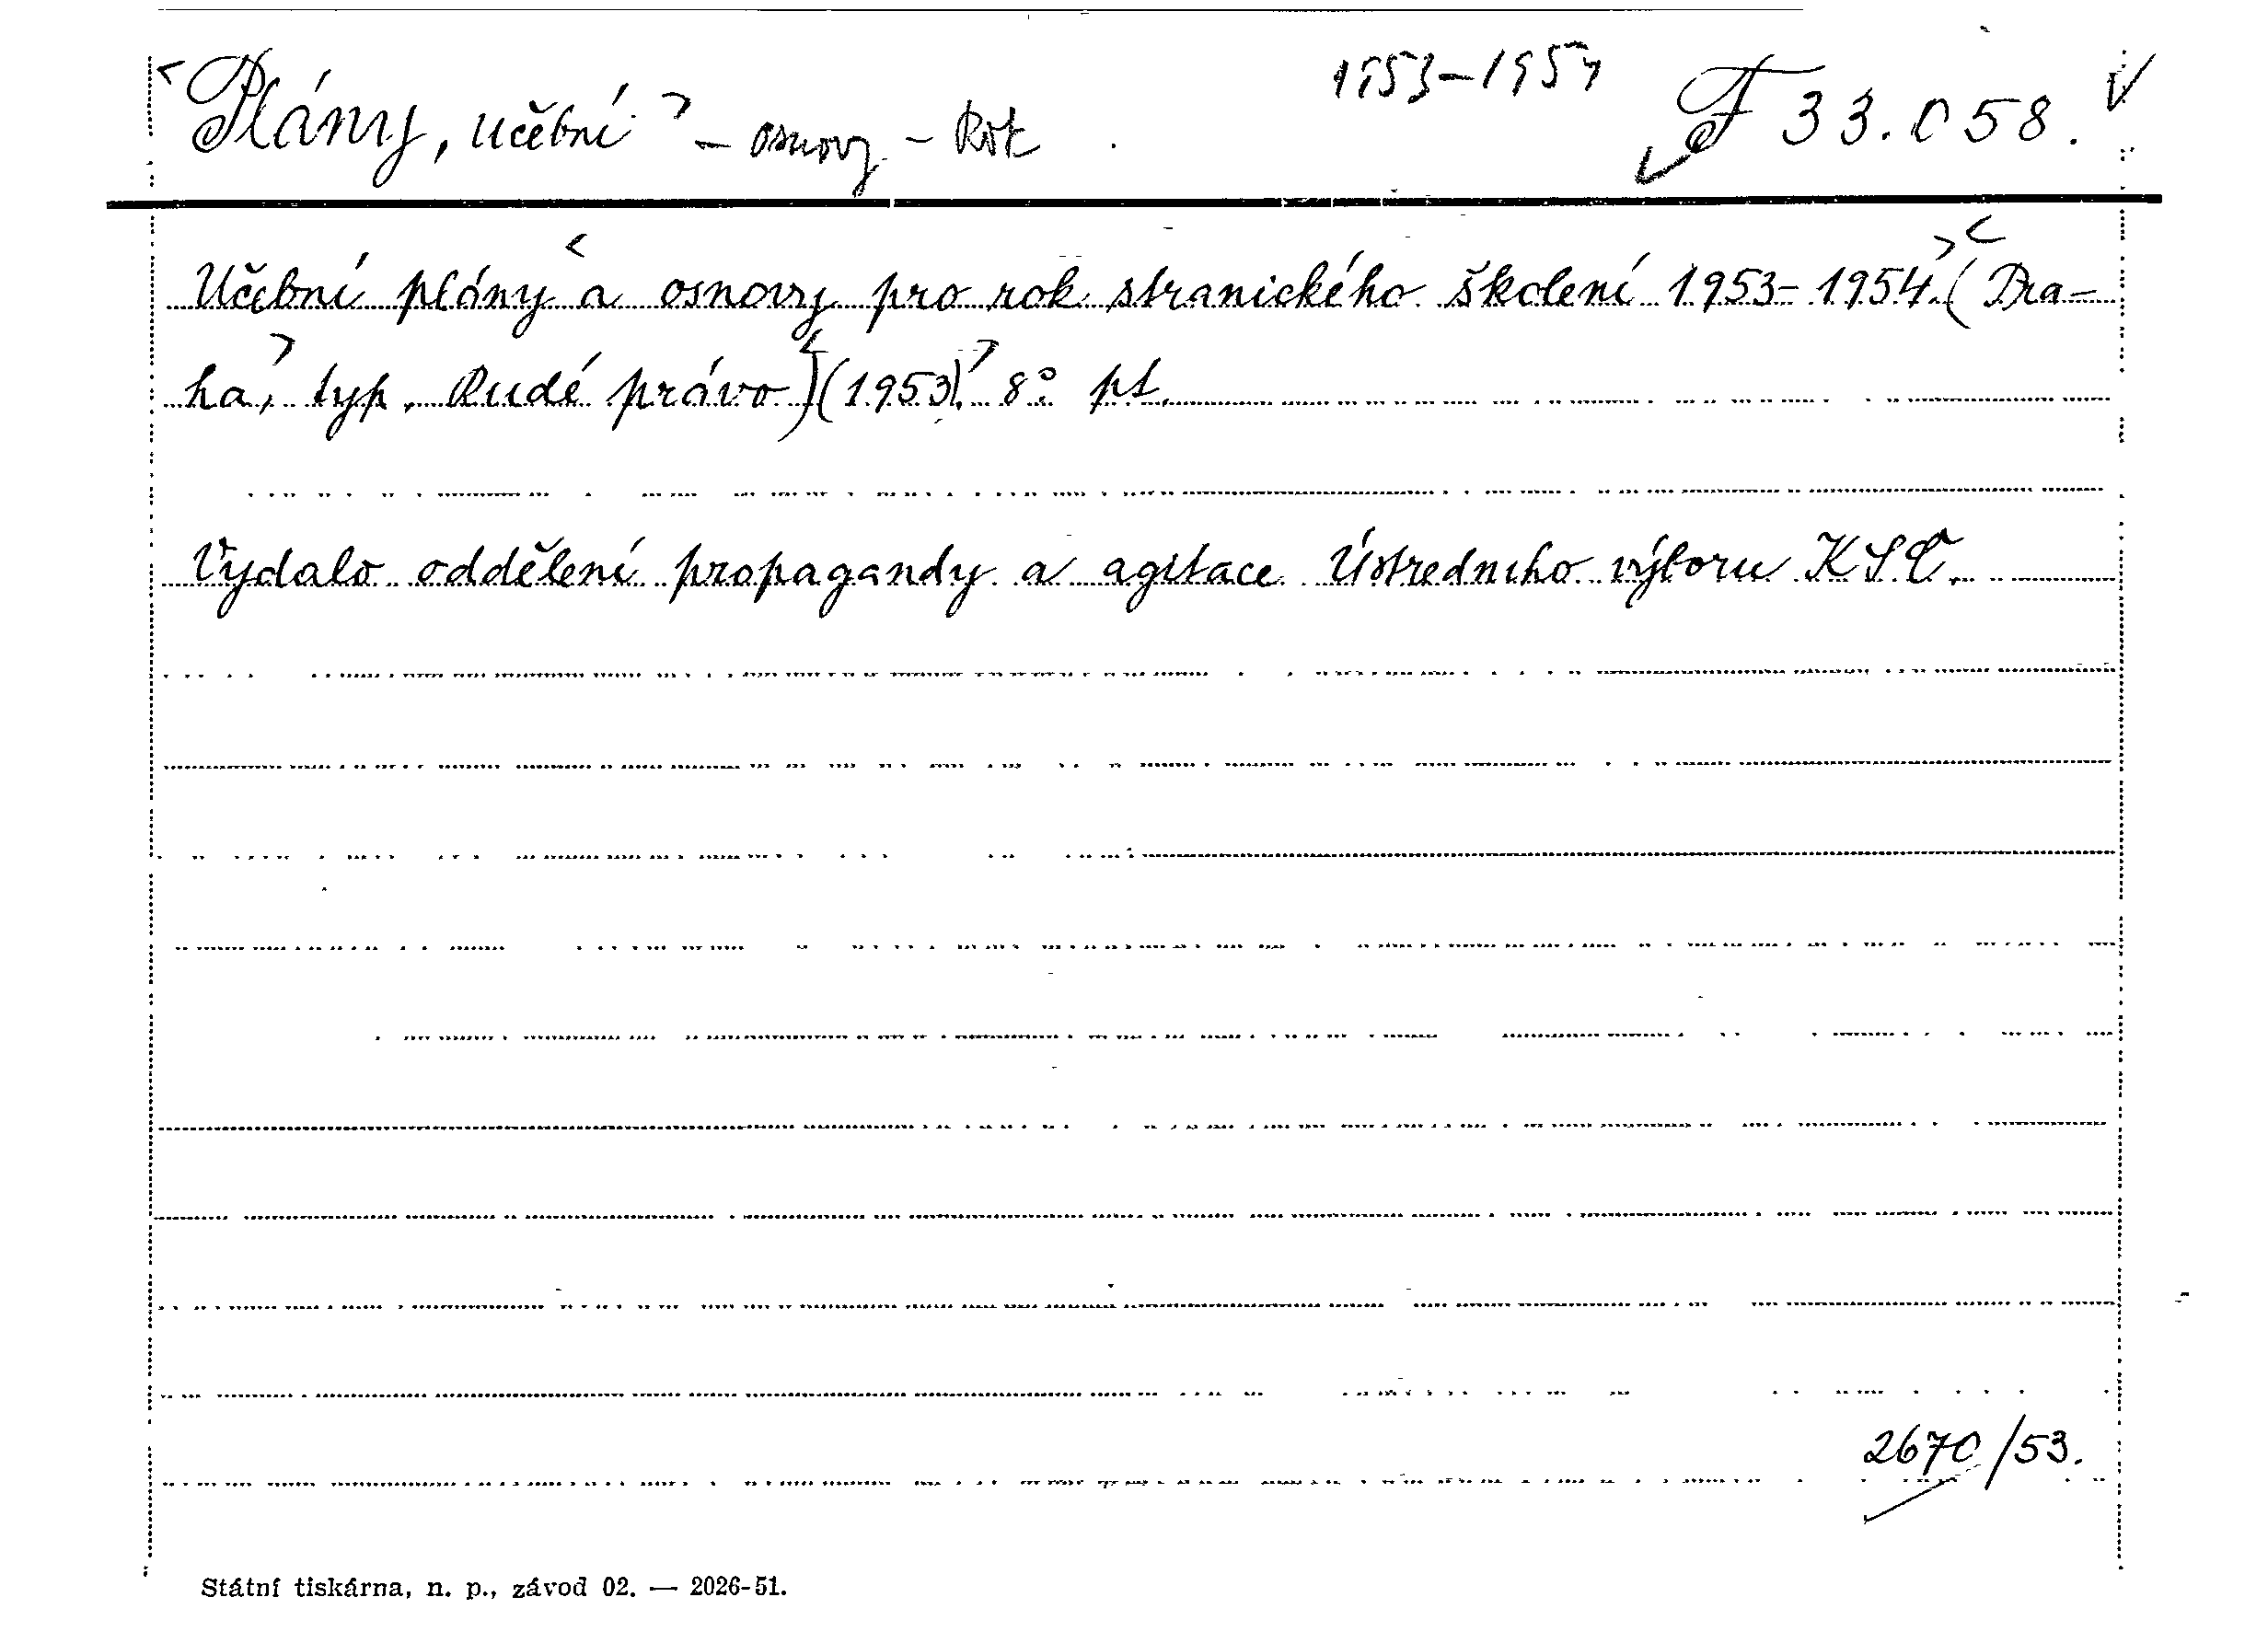 <Plány, učební> - osnovy - Rok 1953-1954 F 33.058.
Učební plány < a osnovy pro rok stranického školení 1953-1954.> (< Pra-
ha,> typ. Rudé právo)< (1953).> 8° pt.
Vydalo oddělení propagandy a agitace Ústředniho výboru KSČ.
2670/53.
Státní tiskárna, n. p., závod 02. — 2026-51.